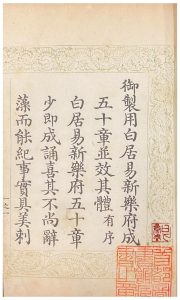 御製用白居易新樂府成
五十章並效其體有序
白居易新樂府五十章
少即成誦喜其不尚辭
藻而能紀事實具美刺